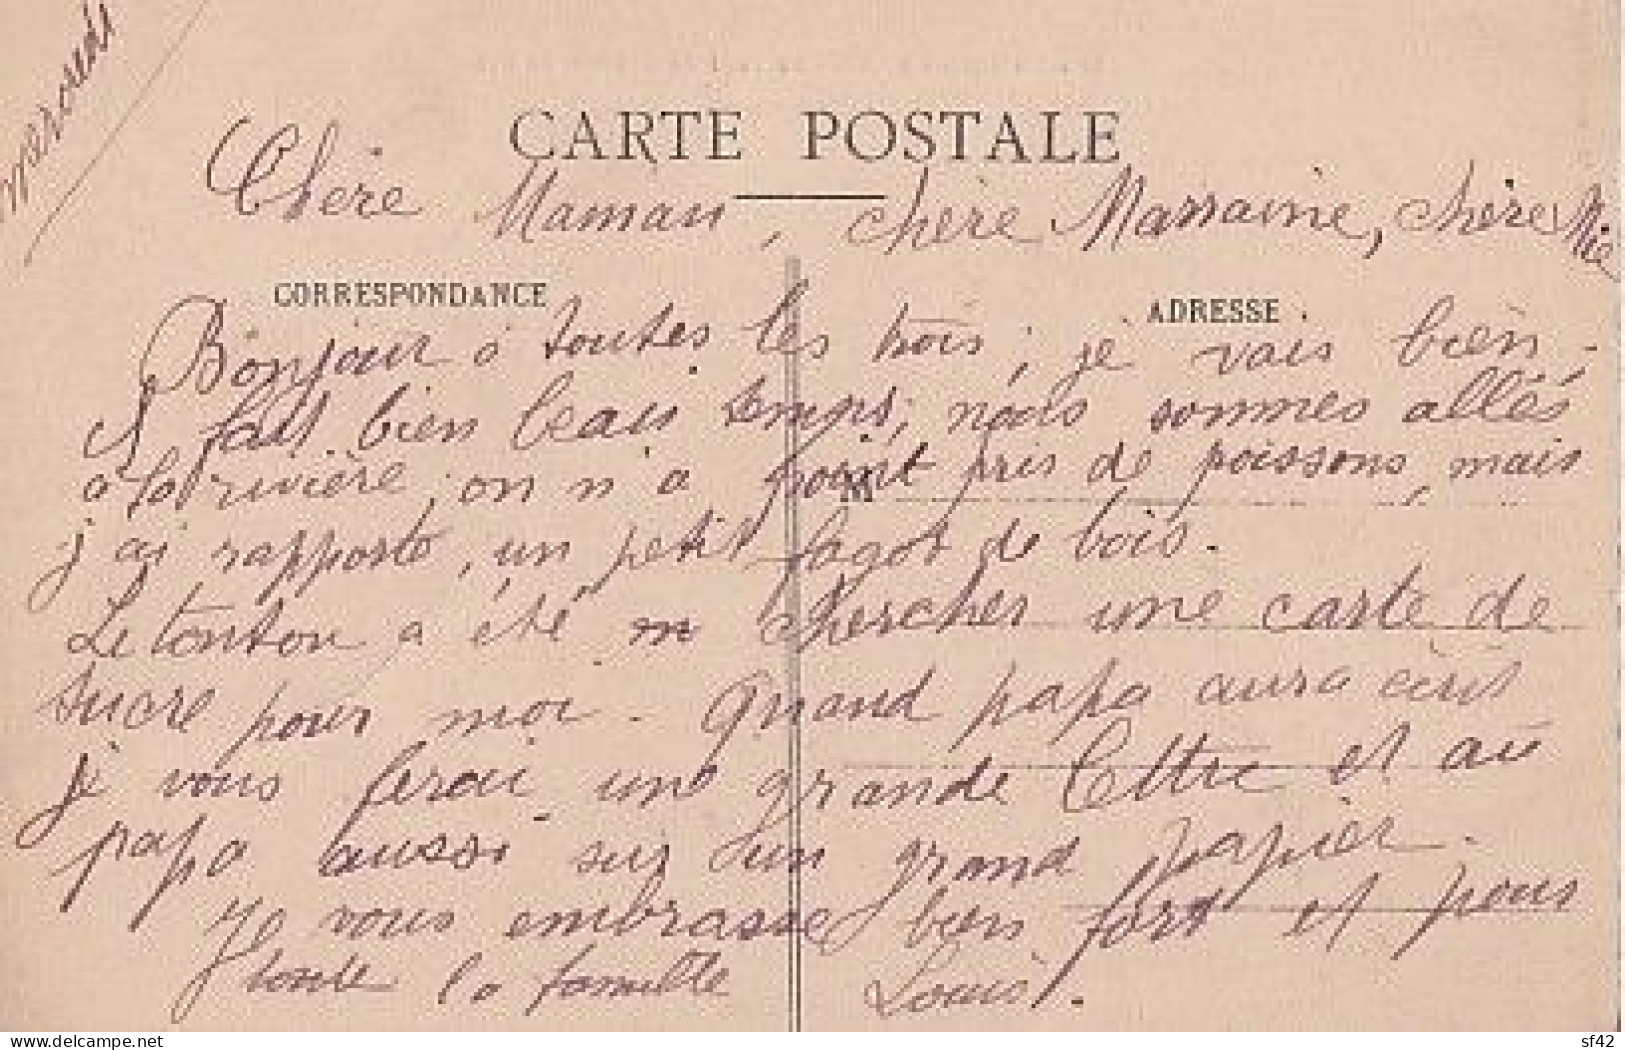 mercredi
CARTE POSTALE
Chère Maman, chère Marraine, chère Mie
CORRESPONDANCE
ADRESSE
Bonjour à toutes les trois, je vais bien.
Il fait bien beau temps, nous sommes allés
à la rivière, on n'a point pris de poissons, mais
M
j'ai rapporté, un petit fagot de bois.
Le tonton a été m chercher une carte de
sucre pour moi. Quand papa aura écrit
je vous ferai une grande lettre et au
papa aussi sur un grand papier.
Je vous embrasse bien fort et pour
toute la famille Louis.
www.delcampe.net
sf42